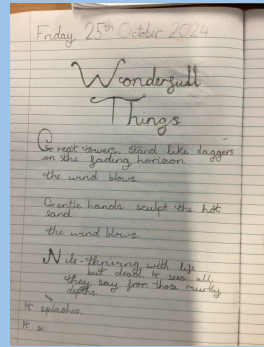 Friday 25th October 2024
Wonderfull
Things
Great towers. Stand like daggers
on the fading horizon.
the wind blows.
Gentle hands sculpt the hot
sand.
the wind blows.
Nile-thriving with life
but dead. It sees all,
they say from those murky
depths.
It splashes.
It